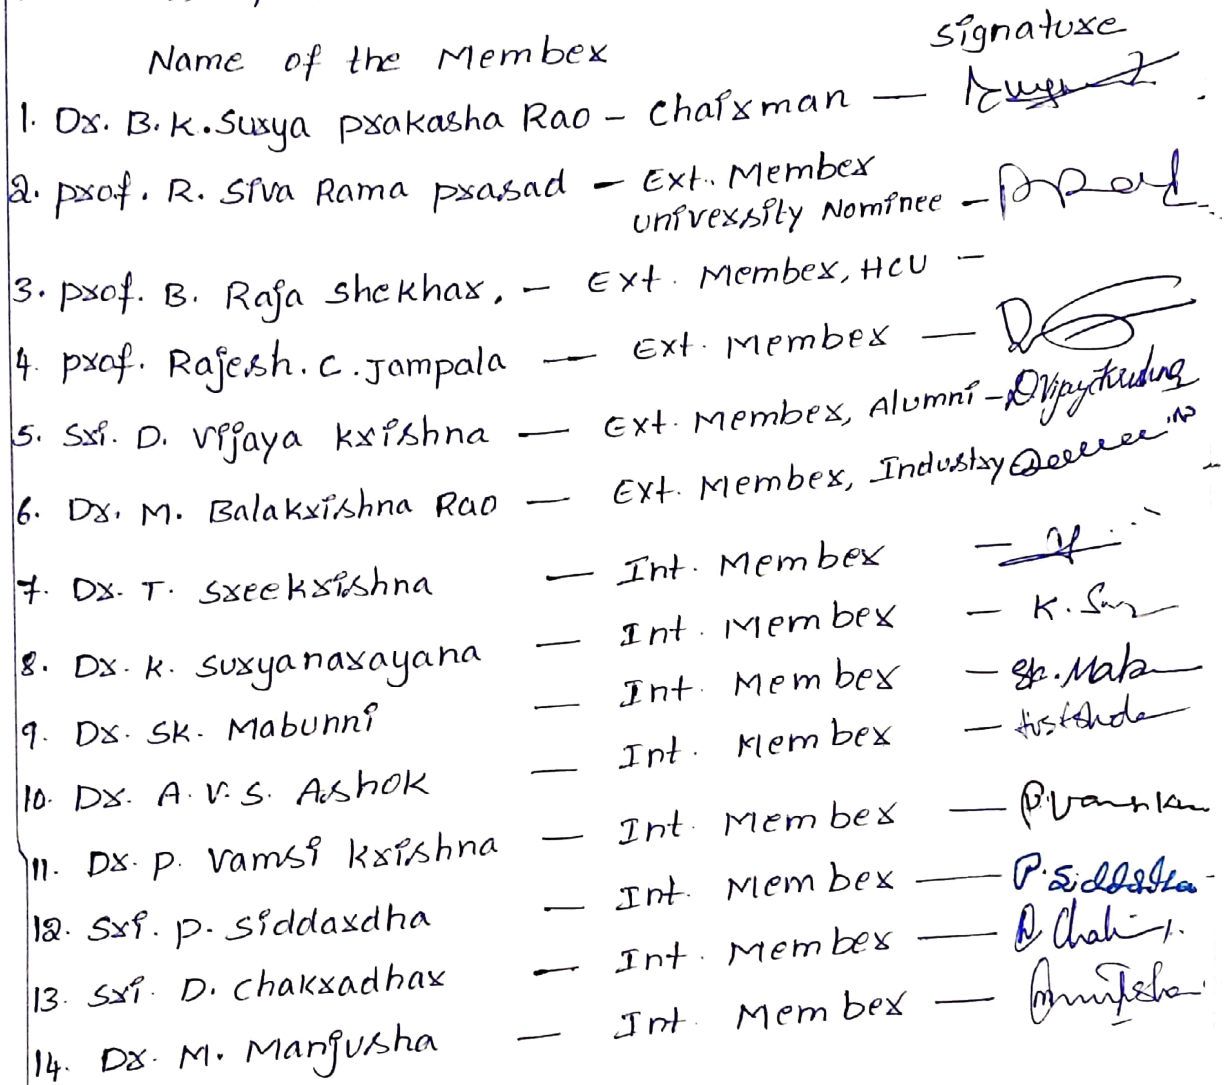 Name of the Member signature
1. Dr. B.K. Surya prakasha Rao - Chairman -
2. prof. R. Siva Rama prasad - Ext. Member
university Nominee -
3. prof. B. Raja shekhar, - Ext. Member, HCU -
4. prof. Rajesh. C. Jampala - Ext. Member -
5. Sri. D. Vijaya krishna - Ext. Member, Alumni - D.Vijay Krishna
6. Dr. M. Balakrishna Rao - Ext. Member, Industry
7. Dr. T. Sreekrishna - Int. Member -
8. Dr. K. Suryanarayana - Int. Member - K. Sury
9. Dr. SK. Mabunni - Int. Member - Sk. Mab
10. Dr. A.V.S. Ashok - Int. Member -
11. Dr. P. Vamsi krishna - Int. Member - P. Vamsi K
12. Sri. P. Siddardha - Int. Member - P. Siddardha
13. Sri. D. Chakradhar - Int. Member - D Chak
14. Dr. M. Manjusha - Int. Member -